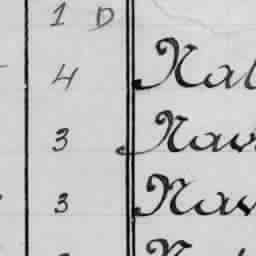 1 D
4 Nat
3 Nav
3 Nav